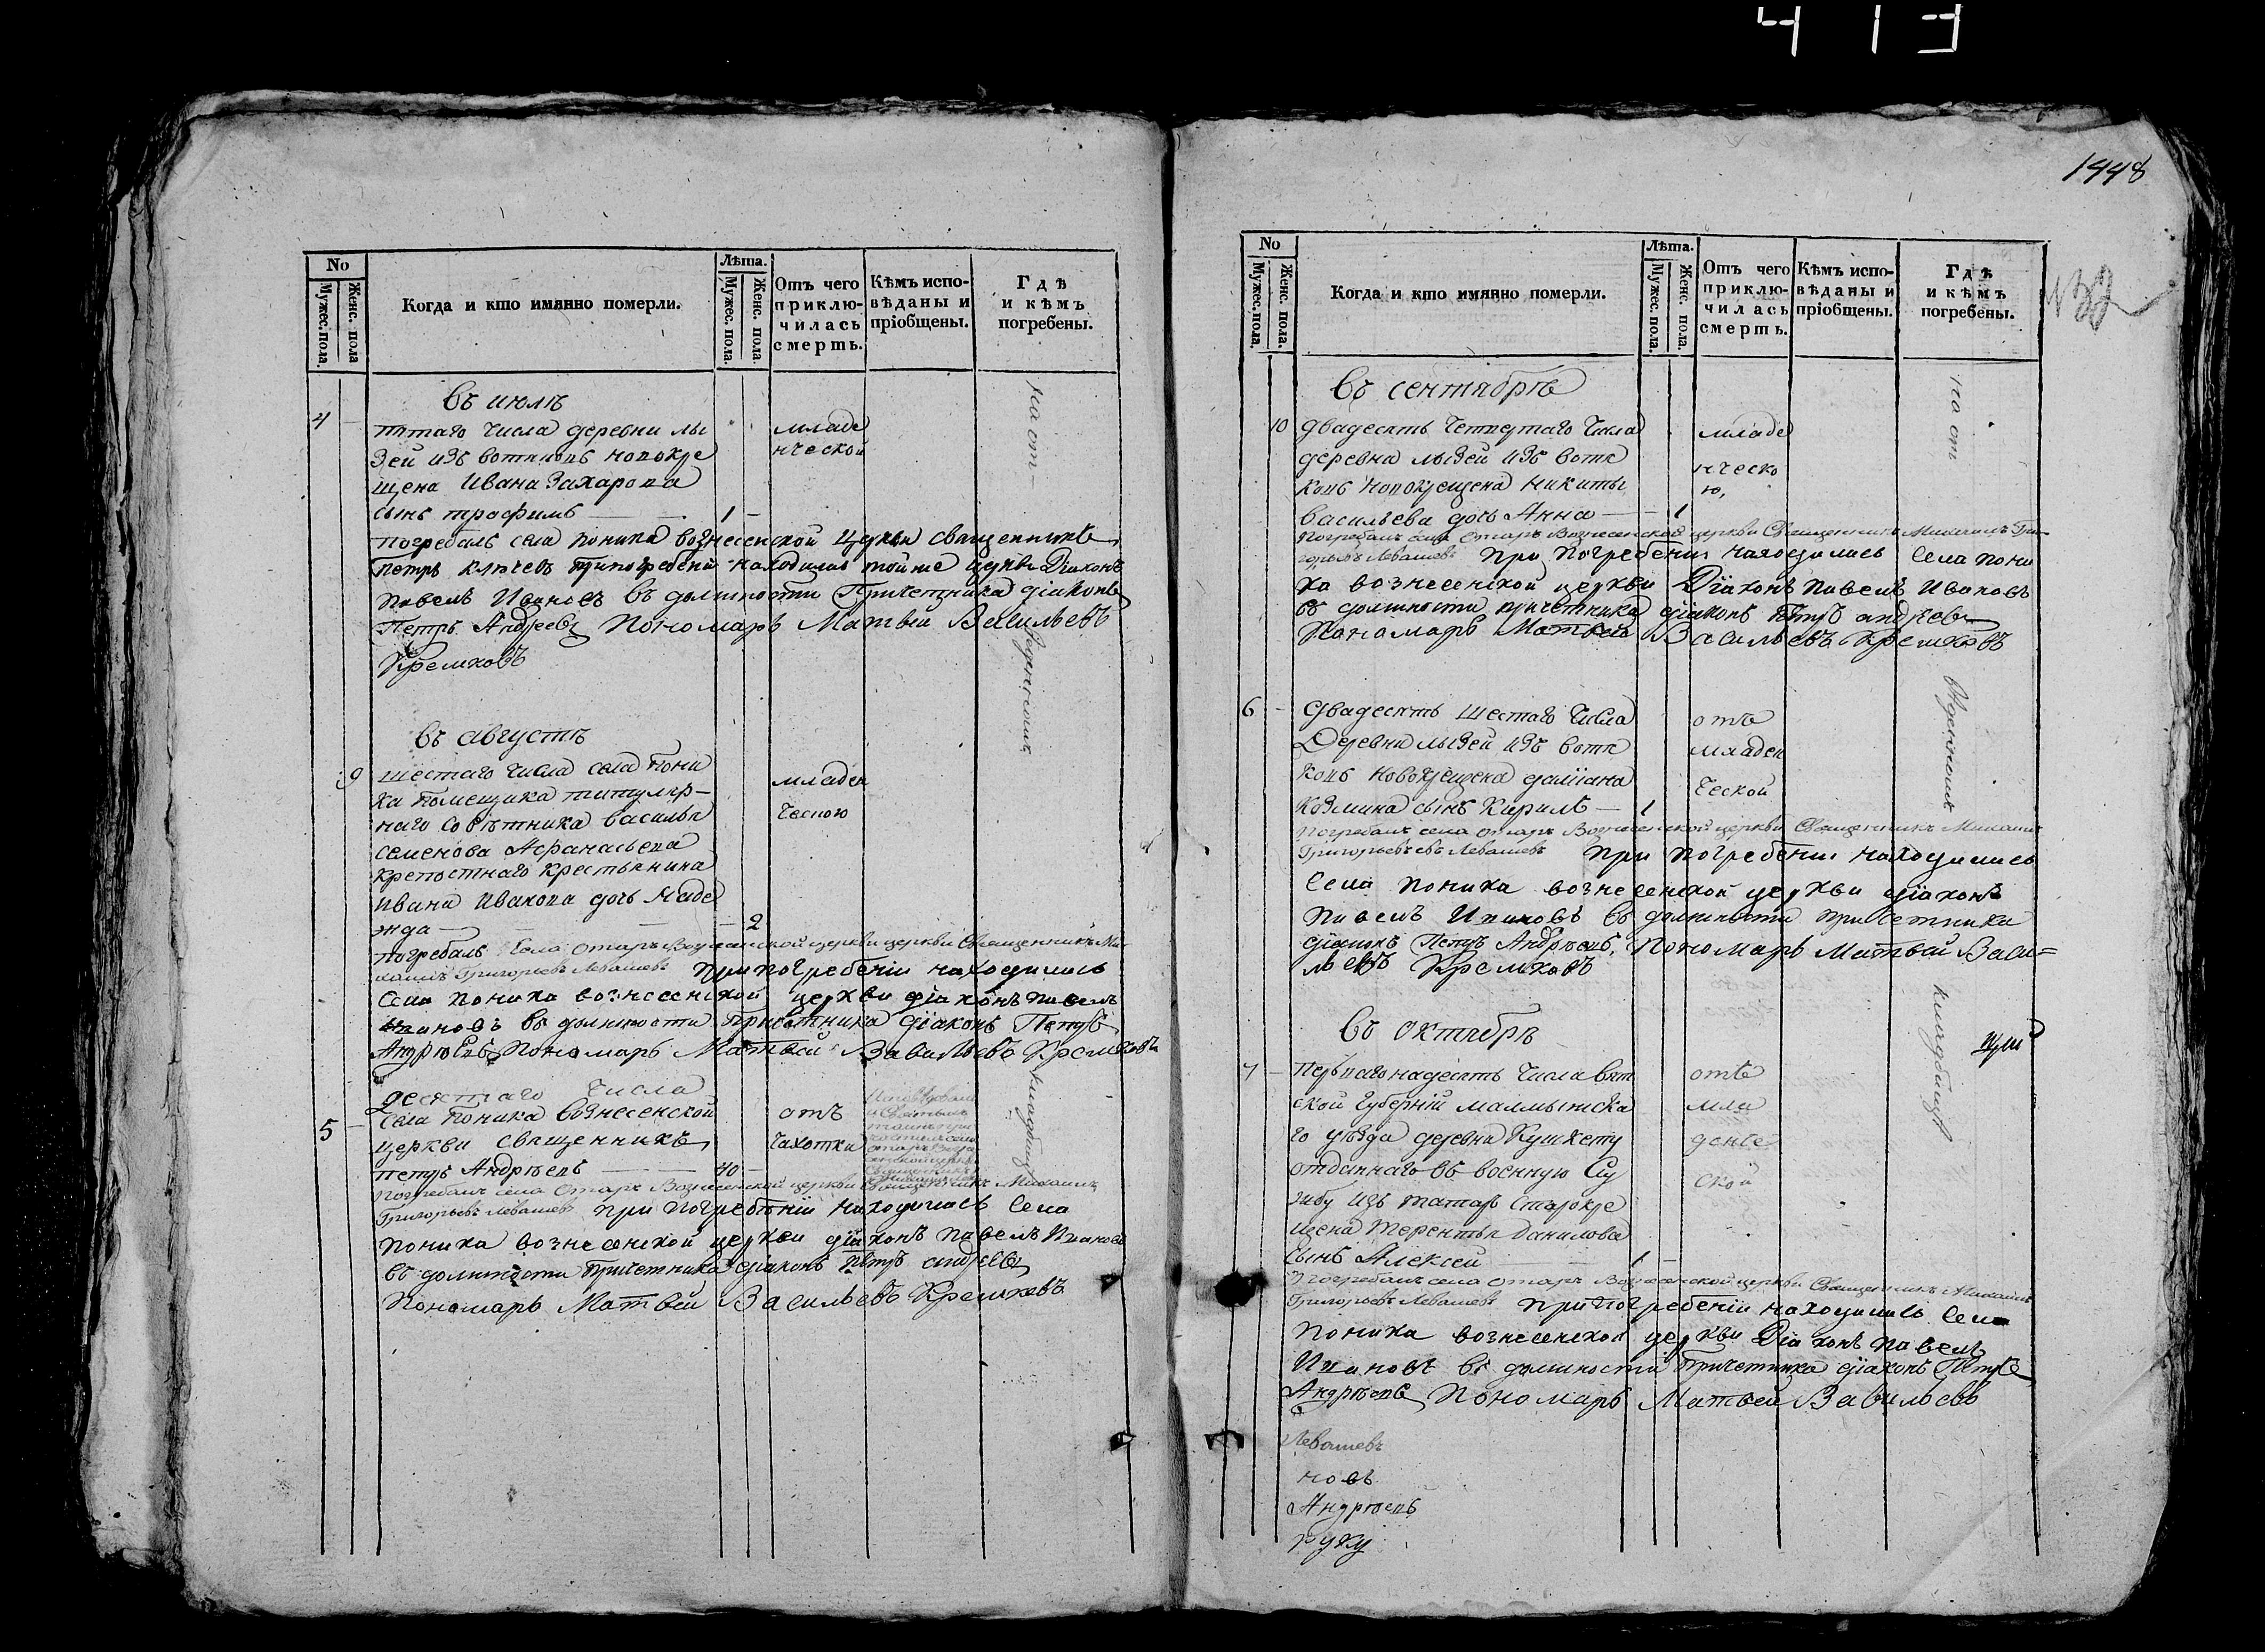 413
1448
No
Мужес. пола.
Женс. пола
Когда и кто имянно померли.
Лѣта.
Мужес. пола.
Женс. пола.
Отъ чего приклю-
чилась смерть.
Кѣмъ испо-
вѣданы и
пріобщены.
Гдѣ
и кѣмъ
погребены.
въ июлѣ
4
пятаго числа деревни лы
младе
зей изъ вотяковъ новокре
нческой
щена Ивана Захарова
сынъ трофимъ 1
погребалъ села поника вознесенской церкви священникъ
петръ ключевъ припогребеніи находилис тойже церкви Діаконъ
Павелъ Ивановъ въ должности Причетника діаконъ
Петръ Андреевъ Пономарь Матвѣй Васильевъ
Кремковъ
на от
веденномъ
кладбищѣ
въ августѣ
9
шестаго числа села пони
младен
ка помещика титуляр-
наго советника василья
ческою
семенова Афанасьева
крепостнаго крестьянина
ивана Иванова дочь Наде
жда 2
погребалъ Села Отаръ Вознесенской церкви церкви Священникъ Ми
хаилъ Григорьевъ Левашевъ при погребеніи находились
Села поника вознесенской церкви діаконъ павелъ
Ивановъ въ должности Причетника діаконъ Петръ
Андрѣевъ Пономарь Матвей Васильевъ Кремковъ
десятаго числа
5
села поника вознесенской
отъ
церкви священникъ
чахотки
петръ Андрѣевъ 40
погребалъ села Отаръ Вознесенской церкви Священникъ Михаилъ
Григорьевъ Левашевъ при погребеніи находились Села
поника вознесенской церкви діаконъ павелъ Иванов
въ должности Причетника діаконъ петръ андреевъ
Пономарь Матвей Васильевъ Кремковъ
No
Мужес. пола.
Женс. пола.
Когда и кто имянно померли.
Лѣта.
Мужес. пола.
Женс. пола.
Отъ чего приклю-
чилась смерть.
Кѣмъ испо-
вѣданы и
пріобщены.
Гдѣ
и кѣмъ
погребены.
въ сентябрѣ
10
двадесять четвертаго числа
младе
деревни лызей изъ вотя
нческо
ковъ новокрещена никиты
ю,
васильева дочь Анна 1
Погребалъ села Отаръ Вознесенской церкви Священникъ Михаилъ Гри-
горьевъ Левашевъ при погребеніи находились Села пони
ка вознесенской церкви Діаконъ павелъ Ивановъ
въ должности причетника діаконъ петръ андреевъ
Пономарь Матвей Васильевъ Кремковъ
на от
веденномъ
кладбищѣ
6
двадесять шестаго числа
отъ
Деревни лызей изъ вотя
младен
ковъ новокрещена даміана
ческой
козмина сынъ Кирилъ 1
Погребалъ села Отаръ Вознесенской церкви Священникъ Михаилъ
Григорьевъ Левашевъ при погребеніи находились
Села поника вознесенской церкви діаконъ
павелъ Ивановъ въ должности причетника
діаконъ Петръ Андрѣевъ, Пономарь Матвей Васи=
льевъ Кремковъ
въ октябрѣ
7
первагонадесять числа вят
отъ
ской губерніи малмыжска
мла
го уезда деревни Кушкету
денче
отданнаго въ военную Слу
ской
жбу изъ татаръ старокре
щена терентья данилова
сынъ Алексей 1
погребалъ села Отаръ Вознесенской церкви Священникъ Михаилъ
Григорьевъ Левашевъ при погребеніи находились Села
поника вознесенской церкви Діаконъ павелъ
Ивановъ въ должности Причетника діаконъ Петръ
Андрѣевъ Пономарь Матвей Васильевъ
Левашевъ
новъ
Андрѣевъ
руку